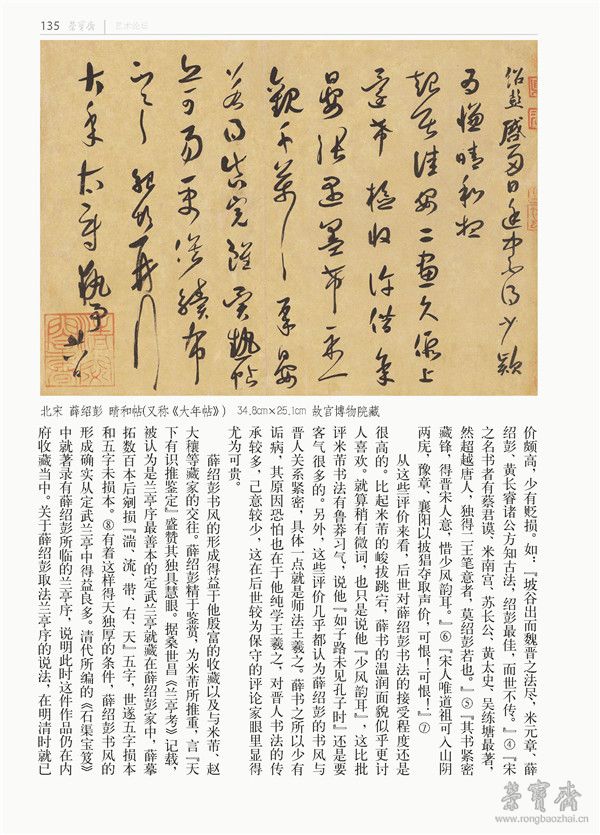 135 榮寶齋 艺术论坛
紹彭感多日廷中不得少款
為慊晴和想
起居佳安二畫久假上
還希檢收許借筆
觀千萬
可易更俟續布
大年太尉執事
北宋 薛绍彭 晴和帖(又称《大年帖》) 34.8cm×25.1cm 故宫博物院藏
价颇高，少有贬损。如：『坡谷出而魏晋之法尽，米元章、薛
绍彭、黄长睿诸公方知古法，绍彭最佳，而世不传。』④『宋
之名书者有蔡君谟、米南宫、苏长公、黄太史、吴练塘最著，
然超越唐人，独得二王笔意者，莫绍彭若也。』⑤『其书紧密
藏锋，得晋宋人意，惜少风韵耳。』⑥『宋人唯道祖可入山阴
两庑，豫章、襄阳以披猖夺取声价，可恨！可恨！』⑦
从这些评价来看，后世对薛绍彭书法的接受程度还是
很高的。比起米芾的峻拔跳宕，薛书的温润面貌似乎更讨
人喜欢。就算稍有微词，也只是说他『少风韵耳』，这比批
评米芾书法有鲁莽习气，说他『如子路未见孔子时』还是要
客气很多的。另外，这些评价几乎都认为薛绍彭的书风与
晋人关系紧密，具体一点就是师法王羲之。薛书之所以少有
诟病，其原因恐怕也在于他纯学王羲之，对晋人书法的传
承较多，己意较少，这在后世较为保守的评论家眼里显得
尤为可贵。
薛绍彭书风的形成得益于他殷富的收藏以及与米芾、赵
大穰等藏家的交往。薛绍彭精于鉴赏，为米芾所推重，言『天
下有识推鉴定』盛赞其独具慧眼。据桑世昌《兰亭考》记载，
被认为是兰亭序最善本的定武兰亭就藏在薛绍彭家中，薛摹
拓数百本后剜损『湍、流、带、右、天』五字，世遂五字损本
和五字未损本。⑧有着这样得天独厚的条件，薛绍彭书风的
形成确实从定武兰亭中得益良多。清代所编的《石渠宝笈》
中就著录有薛绍彭所临的兰亭序，说明此时这件作品仍在内
府收藏当中。关于薛绍彭取法兰亭序的说法，在明清时就已
榮寶齋
www.rongbaozhai.cn